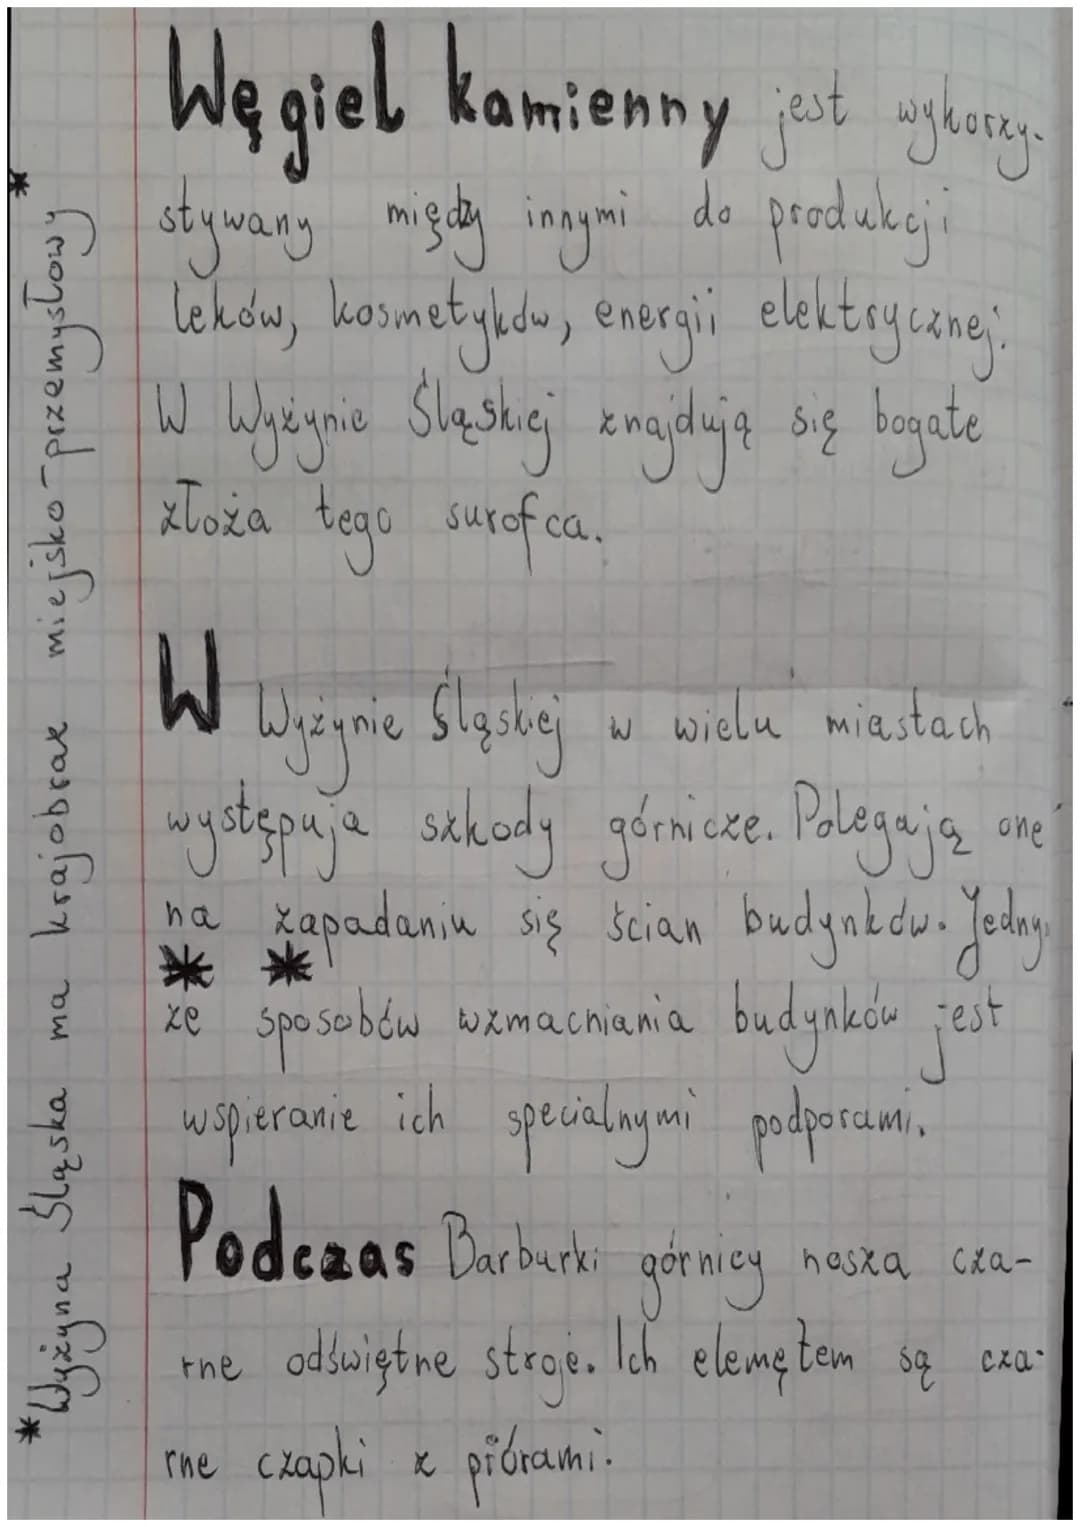 Węgiel kamienny jest wykorzy-
stywany między innymi do produkcji
leków, kosmetyków, energii elektrycznej.
W Wyżynie Śląskiej znajdują się bogate
złoża tego surofca.
W Wyżynie Śląskiej w wielu miastach
występuja szkody górnicze. Polegają one
na zapadaniu się ścian budynków. Jedny
ze sposobów wzmacniania budynków jest
wspieranie ich specialnymi podporami.
Podczas Barburki górnicy nosza cza-
rne odświętne stroje. Ich elemętem są cza-
rne czapki z piórami.
*Wyżyna Śląska ma krajobraz miejsko-przemysłowy*